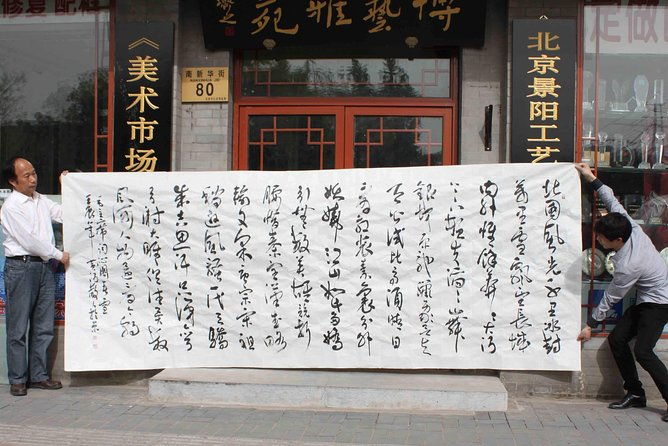 博藝雅苑
修复 配框
定做
《美术市场
南新华街
80
北京景阳工艺
北国风光千里冰封
万里雪飘望长城
内外惟余莽莽大河
上下顿失滔滔山舞
银蛇原驰蜡象欲与天
公试比高须晴日
看红装素裹分外
妖娆江山如此多娇
引无数英雄竞折
腰惜秦皇汉武略
输文采唐宗宋祖
稍逊风骚一代天骄
成吉思汗只识弯
弓射大雕俱往矣数
风流人物还看今朝
毛主席词沁园春雪
壬辰年